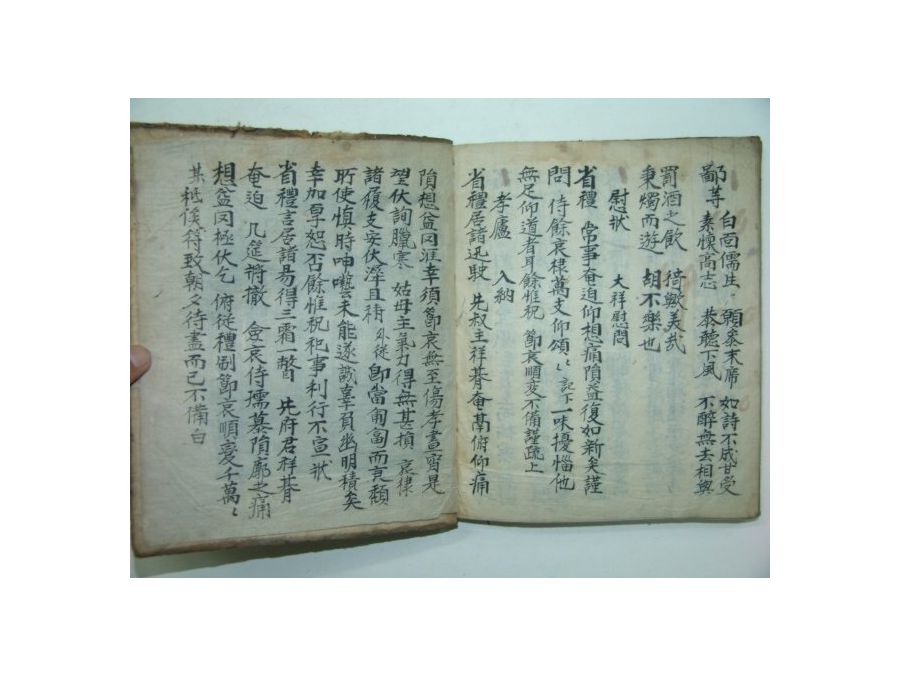 鄙等 白面儒生 願參末席 如詩不成甘受
素懷高志 恭聽下風 不醉無去相與
罰酒之飮 猗歟美哉
秉燭而遊 胡不樂也
慰狀 大祥慰問
省禮 常事奄迫仰想痛隕益復如新矣謹
問 侍餘哀棣萬支仰頌〻記下一味擾惱他
無足仰道者耳餘惟祝 節哀順變不備謹疏上
孝廬 入納
省禮居諸迅駛 先叔主祥朞奄鬲俯仰痛
隕想益罔涯幸須節哀無至傷孝晝宵是
望伏詢臘寒 姑母主氣力得無甚損 哀棣
諸履支安伏溸且祷外從 卽當匍匐而竟頹
所使愼時呻囈未能遂誠辜負幽明積矣
幸加孚恕否餘惟祝祀事利行不宣狀
省禮言居諸易得三霜一瞥 先府君祥朞
奄迫 几筵將撤 僉哀侍孺慕隕廓之痛
想益罔極伏乞 俯從禮制節哀順變千萬〻
其祗俟符致朝夕待盡而已不備白